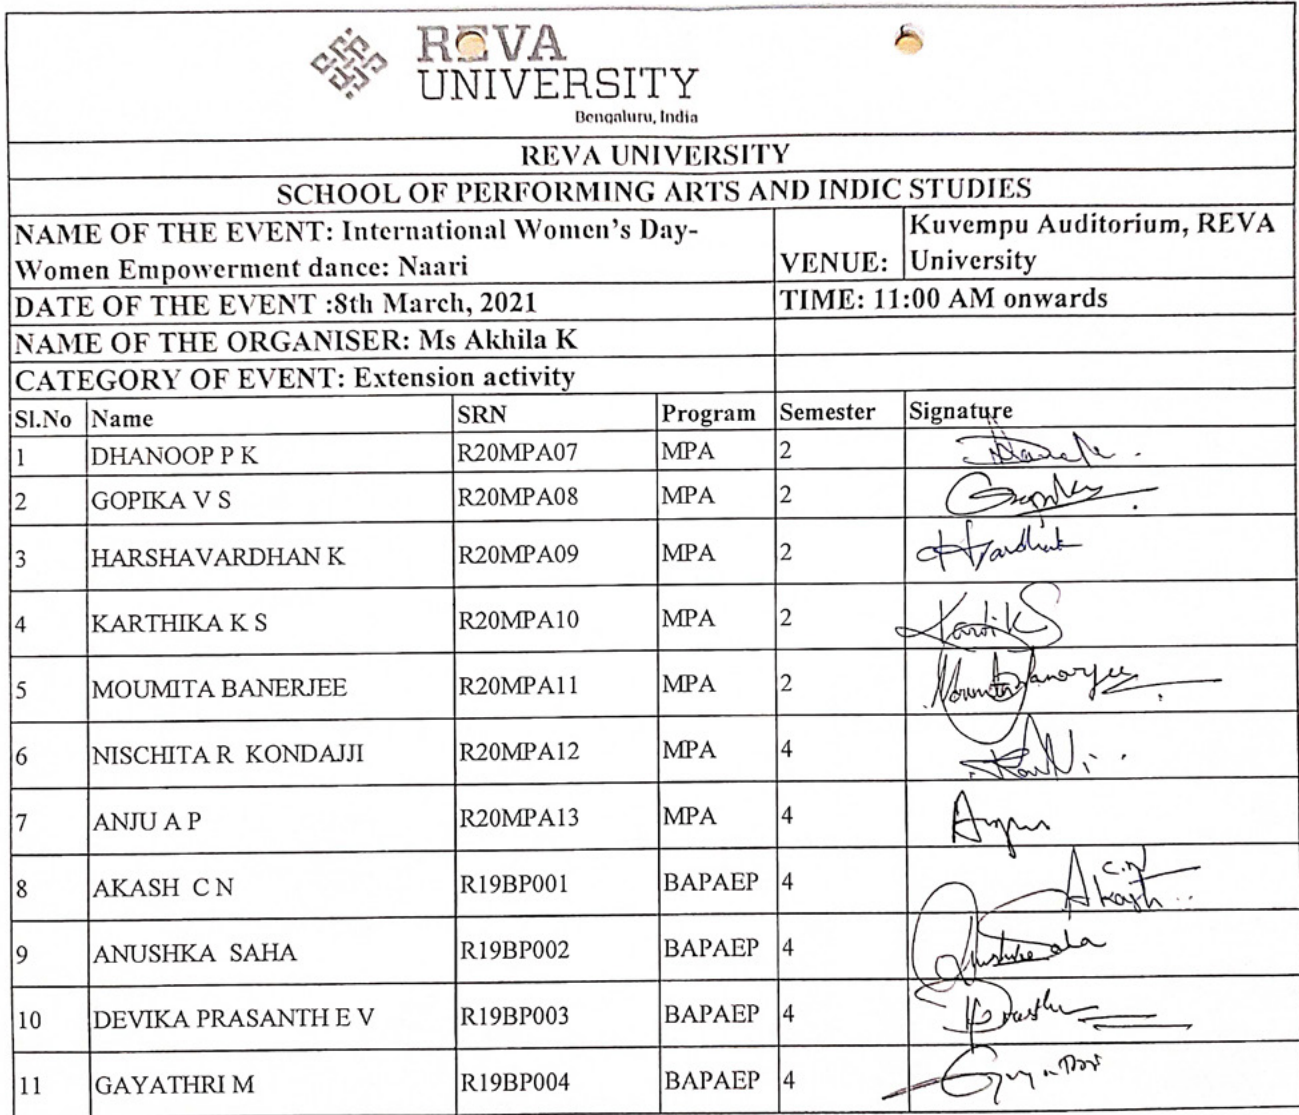 REVA
UNIVERSITY
Bengaluru, India
REVA UNIVERSITY
SCHOOL OF PERFORMING ARTS AND INDIC STUDIES
NAME OF THE EVENT: International Women's Day-
Women Empowerment dance: Naari
VENUE:
Kuvempu Auditorium, REVA
University
DATE OF THE EVENT :8th March, 2021
TIME: 11:00 AM onwards
NAME OF THE ORGANISER: Ms Akhila K
CATEGORY OF EVENT: Extension activity
Sl.No Name SRN Program Semester Signature
1 DHANOOP P K R20MPA07 MPA 2
2 GOPIKA V S R20MPA08 MPA 2
3 HARSHAVARDHAN K R20MPA09 MPA 2
4 KARTHIKA K S R20MPA10 MPA 2
5 MOUMITA BANERJEE R20MPA11 MPA 2
6 NISCHITA R KONDAJJI R20MPA12 MPA 4
7 ANJU A P R20MPA13 MPA 4
8 AKASH C N R19BP001 BAPAEP 4 Akash C.N
9 ANUSHKA SAHA R19BP002 BAPAEP 4
10 DEVIKA PRASANTH E V R19BP003 BAPAEP 4
11 GAYATHRI M R19BP004 BAPAEP 4